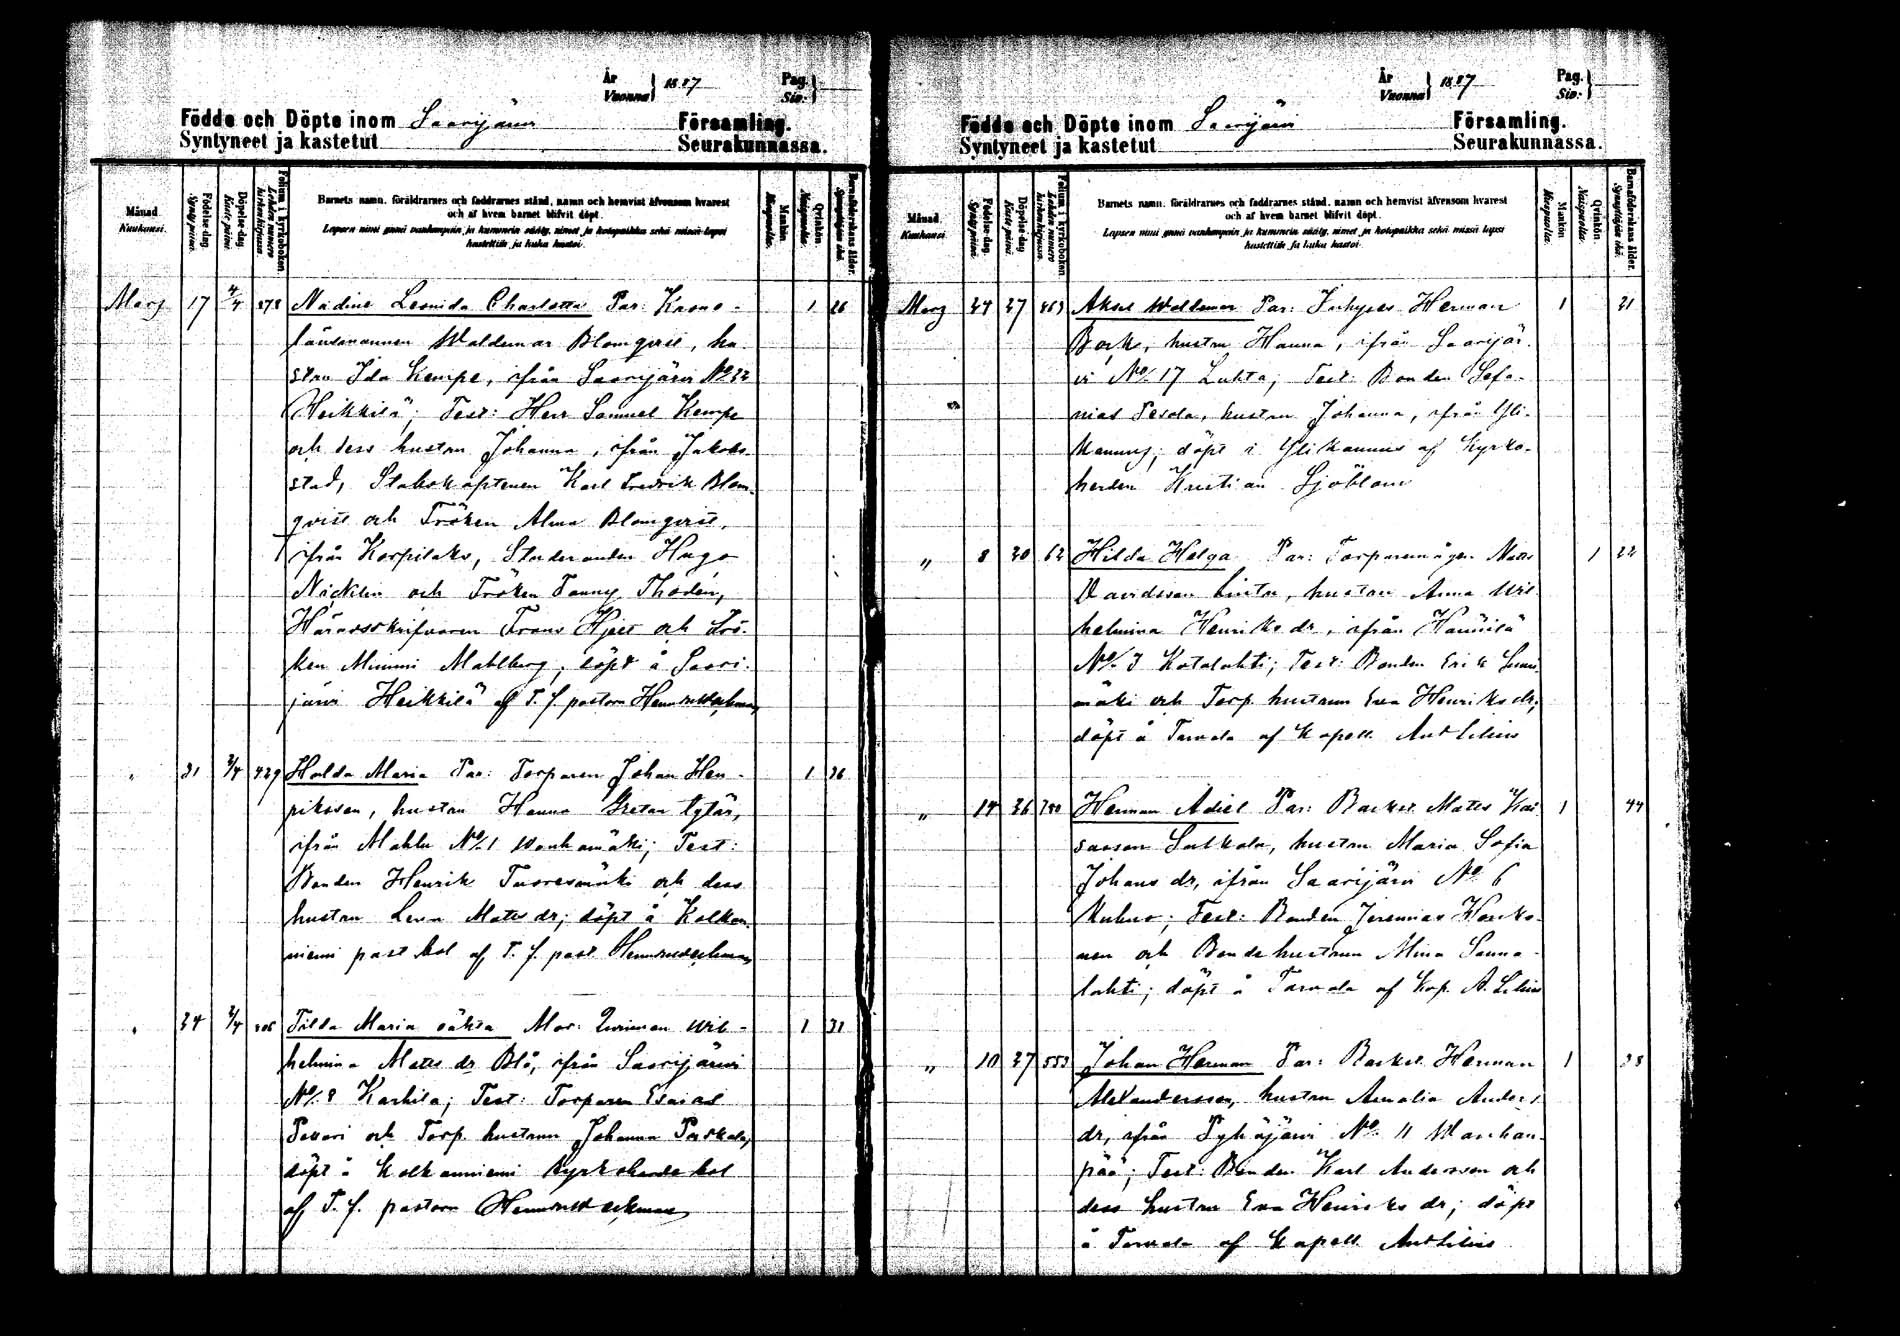 År
Vuonna } 1887
Pag.
Siv. }
Födde och Döpte inom Saarijärvi Församling.
Syntyneet ja kastetut Seurakunnassa.
Månad. Kuukausi.
Födelse-dag. Syntymäpäivä.
Döpelse-dag. Kaste-päivä.
Folium i kyrkoboken. Lehden numero kirkonkirjassa.
Barnets namn, föräldrarnes och faddrarnes stånd, namn och hemvist äfvensom hvarest
och af hvem barnet blifvit döpt.
Lapsen nimi ynnä vanhempain ja kummein sääty, nimet ja kotopaikka sekä missä lapsi
kastettiin ja kuka kastoi.
Mankön. Miespuolia.
Qvinkön. Naispuolia.
Barnaföderskans ålder. Synnyttäjän ikä.
Marz 17 4/4 878 Nadine Leonida Charlotta Par: Krono- 1 26
länsmannen Waldemar Blomqvist, hu-
stru Ida Kempe, ifrån Saarijärvi No 22
Heikkilä; Test: Herr Samuel Kempe
och dess hustru Johanna, ifrån Jakobs-
stad, Stabskaptenen Karl Fredrik Blom-
qvist och Fröken Alma Blomqvist,
ifrån Korpilaks, Studeranden Hugo
Näcklin och Fröken Fanny Thodén,
Häradsskrifvaren Frans Hjelt och Frö-
ken Mimmi Mahlberg; döpt å Saari-
järvi Heikkilä af T. f. pastorn
" 21 3/4 429 Hulda Maria Par: Torparen Johan Hen- 1 26
riksson, hustru Hanna Greta
ifrån Mahlu No 1 Wanhamäki; Test:
Bonden Henrik Tuoresmäki och dess
hustru Lena Mats dr; döpt å Kolkan-
niemi past bol af T. f. past
" 24 3/4 Tilda Maria oäkta Mor: Qvinnan Wil- 1 31
helmina Mats dr Blå, ifrån Saarijärvi
No 8 Karhila; Test: Torparen Esaias
Pekari och Torp. hustrun Johanna
döpt å Kolkanniemi kyrkoherde bol
af T. f. pastorn
År
Vuonna } 1887
Pag.
Siv. }
Födde och Döpte inom Saarijärvi Församling.
Syntyneet ja kastetut Seurakunnassa.
Månad. Kuukausi.
Födelse-dag. Syntymäpäivä.
Döpelse-dag. Kaste-päivä.
Folium i kyrkoboken. Lehden numero kirkonkirjassa.
Barnets namn, föräldrarnes och faddrarnes stånd, namn och hemvist äfvensom hvarest
och af hvem barnet blifvit döpt.
Lapsen nimi ynnä vanhempain ja kummein sääty, nimet ja kotopaikka sekä missä lapsi
kastettiin ja kuka kastoi.
Mankön. Miespuolia.
Qvinkön. Naispuolia.
Barnaföderskans ålder. Synnyttäjän ikä.
Marz 24 27 463 Aksel Waldemar Par: Inhyses Herman 1 21
Back, hustru Hanna, ifrån Saarijär-
vi No 17 Luhta; Test: Bonden Sefa-
nias Pesola, hustru Johanna, ifrån Yli-
kannus; döpt i Ylikannus af Kyrko-
herden Kristian Sjöblom
" 8 20 62 Hilda Helga Par: Torpareinågen Matts 1 22
Davidsson Lintu, hustru Anna Wil-
helmina Henriks dr, ifrån Hännilä
No 3 Kotalahti; Test: Bonden Erik
mäki och Torp. hustrun Eva Henriks dr,
döpt å Tarvala af Kapell. Ant Lilius
" 14 26 Herman Adiel Par: Backst. Matts 1 44
Salkola, hustru Maria Sofia
Johans dr, ifrån Saarijärvi No 6
Kuhno; Test: Bonden Jeremias Honko-
nen och Bondehustrun Mina Sauna-
lahti; döpt å Tarvala af Kap. A. Lilius
" 10 27 553 Johan Herman Par: Backst. Herman 1 28
Alexandersson, hustru Amalia Anders
dr, ifrån Pyhäjärvi No 11 Manhan-
pää; Test: Bonden Karl Andersson och
dess hustru Eva Henriks dr; döpt
å Tarvala af Kapell. Ant Lilius